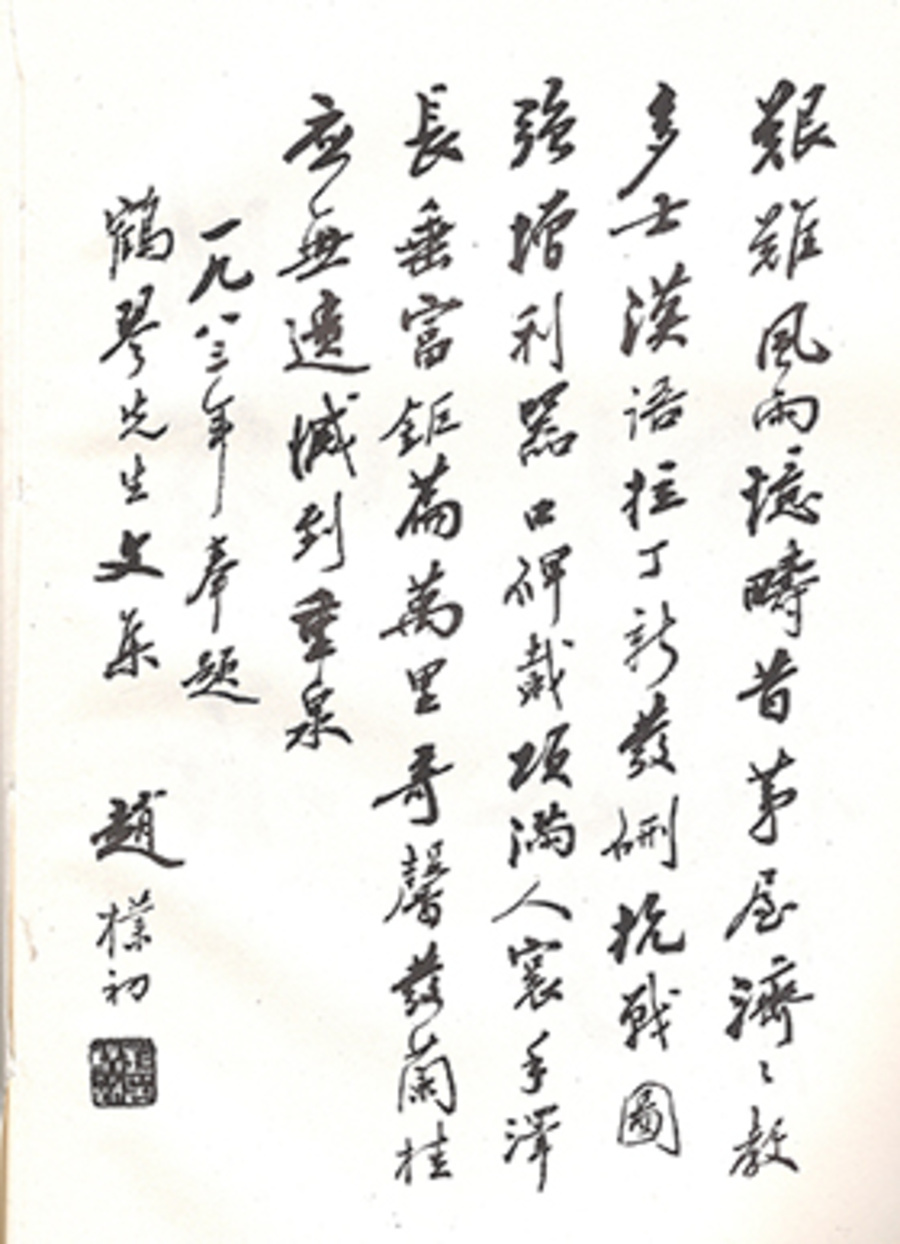 艱難風雨憶疇昔茅屋濟〻教
多士漢语拉丁新發硎抗戰圖
強增利器口碑載項滿人寰手澤
長垂富鉅篇萬里奇馨發蘭桂
应無遺憾到重泉
一九八三年奉题
鶴琴先生文集 趙樸初